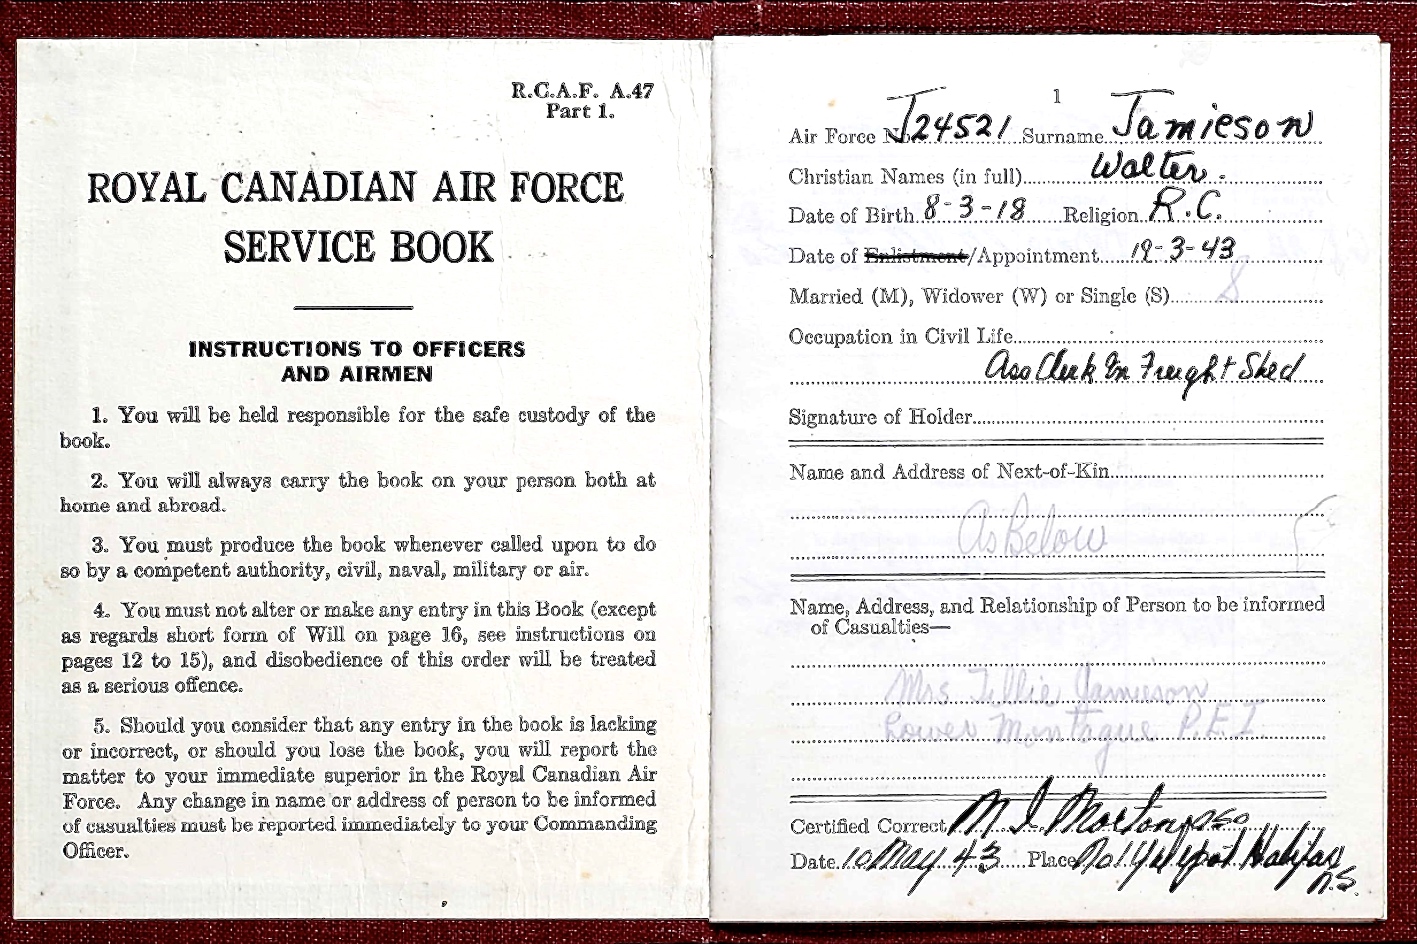 R.C.A.F. A.47
Part 1.
ROYAL CANADIAN AIR FORCE
SERVICE BOOK
INSTRUCTIONS TO OFFICERS
AND AIRMEN
1. You will be held responsible for the safe custody of the
book.
2. You will always carry the book on your person both at
home and abroad.
3. You must produce the book whenever called upon to do
so by a competent authority, civil, naval, military or air.
4. You must not alter or make any entry in this Book (except
as regards short form of Will on page 16, see instructions on
pages 12 to 15), and disobedience of this order will be treated
as a serious offence.
5. Should you consider that any entry in the book is lacking
or incorrect, or should you lose the book, you will report the
matter to your immediate superior in the Royal Canadian Air
Force. Any change in name or address of person to be informed
of casualties must be reported immediately to your Commanding
Officer.
1
Air Force No. J24521 Surname Jamieson
Christian Names (in full) Walter.
Date of Birth 8-3-18 Religion R.C.
Date of Enlistment/Appointment 19-3-43
Married (M), Widower (W) or Single (S) S
Occupation in Civil Life
Ass Clerk In Freight Shed
Signature of Holder
Name and Address of Next-of-Kin
As Below
Name, Address, and Relationship of Person to be informed
of Casualties—
Mrs Tillie Jamieson
Lower Montague P.E.I.
Certified Correct M I Morton
Date 10 May 43 Place No 1 Y Depot Halifax
N.S.